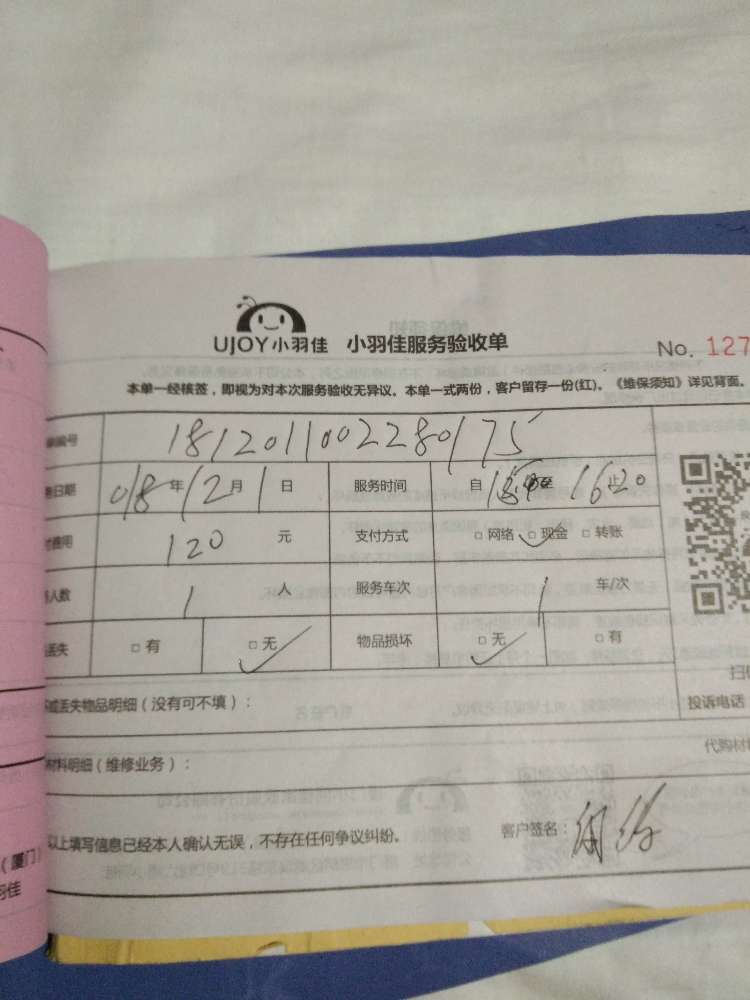 UJOY小羽佳 小羽佳服务验收单
No. 127
本单一经核签，即视为对本次服务验收无异议。本单一式两份，客户留存一份(红)。《维保须知》详见背面。
编号 1812011002280175
日期 018年12月1日 服务时间 自 至 1620 止
费用 120 元 支付方式 □网络 □现金 □转账
人数 1 人 服务车次 1 车/次
丢失 □有 □无 物品损坏 □无 □有
扫
或丢失物品明细（没有可不填）：
投诉电话
代购材
材料明细（维修业务）：
以上填写信息已经本人确认无误，不存在任何争议纠纷。
客户签名：
（厦门）
羽佳